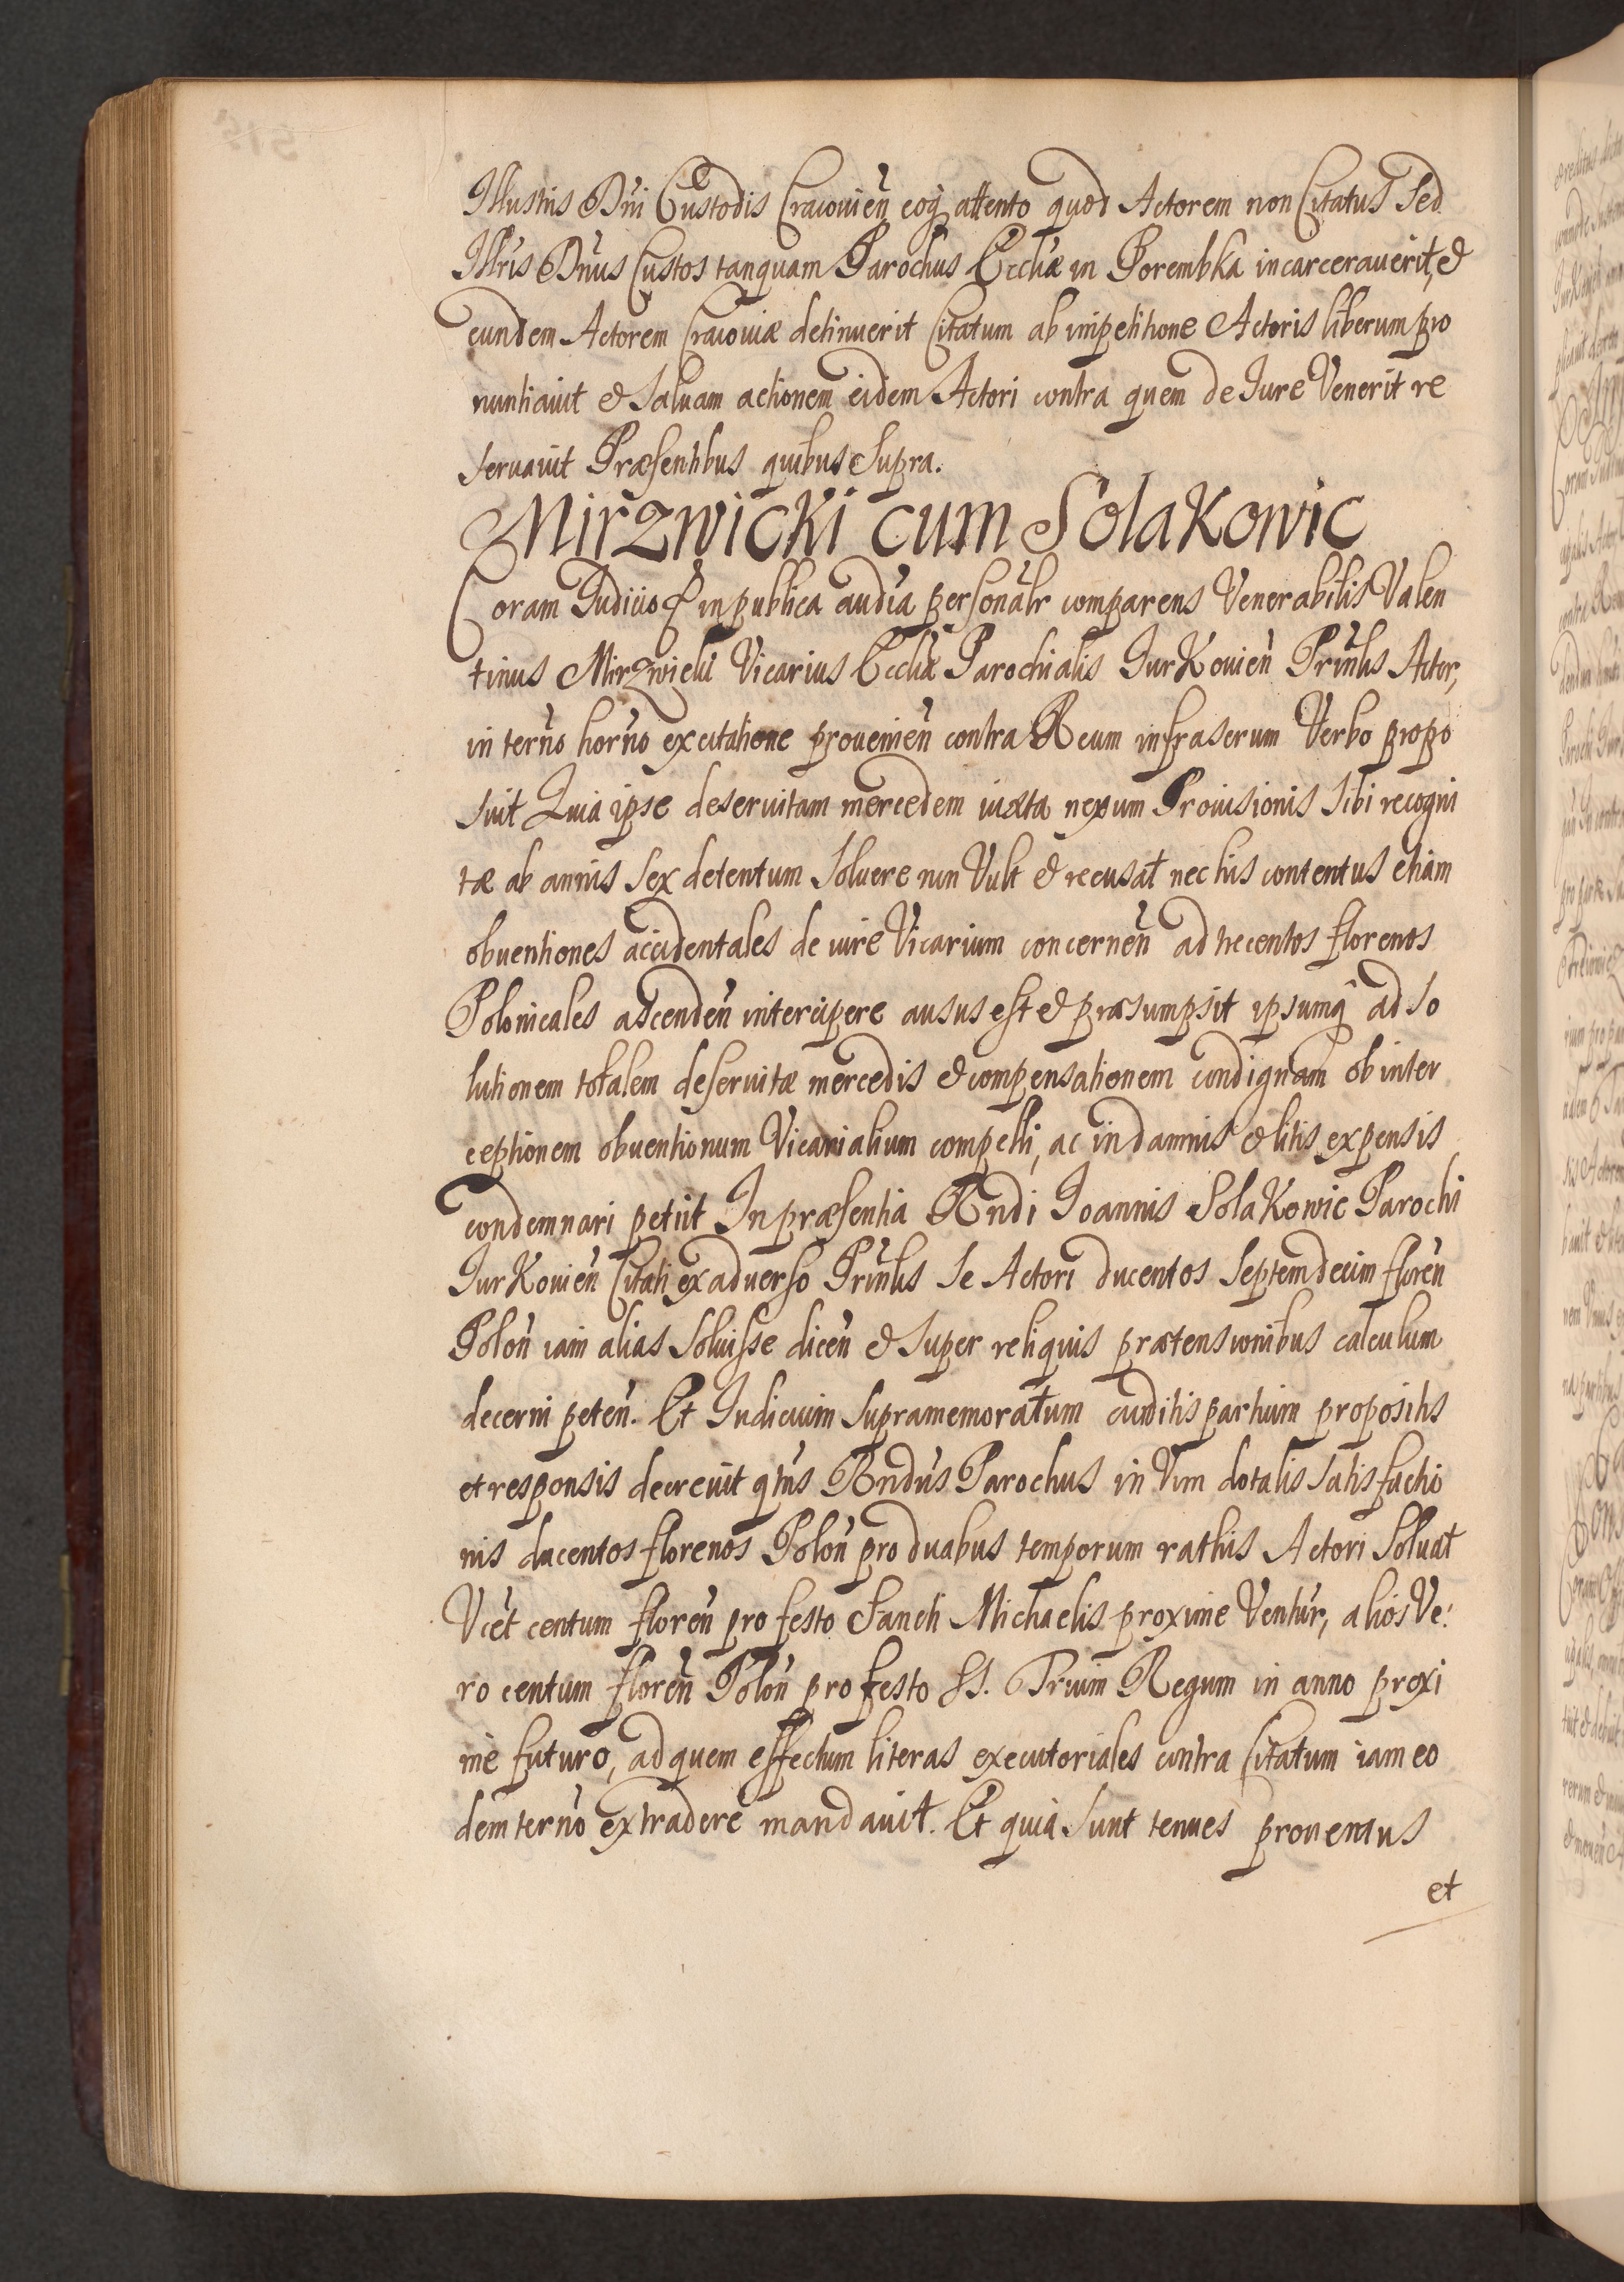 Illustris Dni Custodis Cracovien eoq attento quod Actorem non Citatus sed
Illris Dnus Custos tanquam Parochus Eccliæ in Porembka incarcerauerit, &
eundem Actorem Cracouiæ detinuerit Citatum ab impetitione Actoris liberum pro
nuntiauit & saluam actionem eidem Actori contra quem de Iure Venerit re
seruauit Præsentibus quibus supra.
Mirzwicki cum Solakowic
Coram Iudicio & in publica audia personalr comparens Venerabilis Valen
tinus Mirzwicki Vicarius Eccliæ Parochialis Iurkouien Prinlis Actor,
in terno horno ex citatione prouenien contra Reum infraserum Verbo propo
suit Quia ipse deseruitam mercedem iuxta nexum Prouisionis sibi recogni
tæ ab annis sex detentum soluere non Vult & recusat nec his contentus etiam
obuentiones accidentales de iure Vicarium concernen ad trecentos florenos
Polonicales ascenden intercipere ausus est & præsumpsit ipsumq ad so
lutionem totalem deseruitæ mercedis & compensationem condignam ob inter
ceptionem obuentionum Vicarialium compelli, ac in damnis & litis expensis
condemnari petiit In præsentia Rndi Ioannis Solakowic Parochi
Iurkouien Citati ex aduerso Prinlis se Actori ducentos septemdecim floren
Polon iam alias soluisse dicen & super reliquis prætensionibus calculum
decerni peten. Et Iudicium supramemoratum auditis partium propositis
et responsis decreuit qtus Rndus Parochus in Vim totalis satisfactio
nis ducentos florenos Polon pro duabus temporum rathis Actori soluat
Vcet centum floren pro festo Sancti Michaelis proxime Ventur, alios Ve:
ro centum floren Polon pro festo SS. Trium Regum in anno proxi
me futuro, ad quem effectum literas executoriales contra Citatum iam eo
dem terno extradere mandauit. Et quia sunt tenues prouentus
et